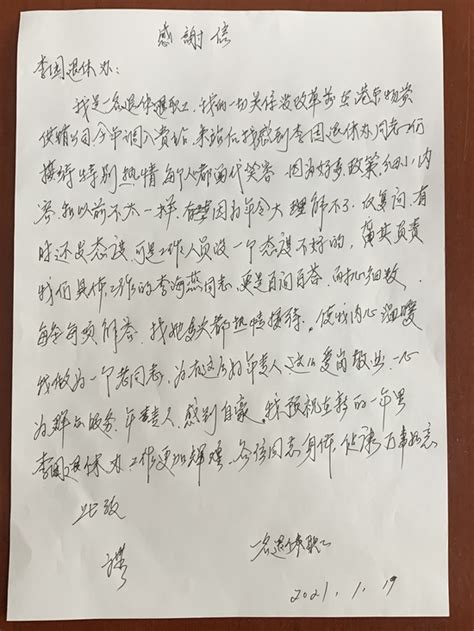 感謝信
李园退休办：
我是一名退休职工，我的一切关系没改革前在港东物资
供销公司今年调入贵站，来站后我感到李园退休办同志们
接待特别热情每个人都面代笑容 因为好多政策，细小内
容和以前不太一样，有些因为年令大理解不了，反复问，有
时还发态度 可是工作人员没一个态度不好的，
我们具体工作的李海燕同志，更是百问百答，面机细致，
每每每项解答，找她每次都热情接待。使我内心温暖
我做为一个老同志，为有这么的年轻人，这么爱岗敬业，一心
为群众服务，年轻人，感到自豪。我预祝在新的一年里
李园退休办工作更加辉煌，各位同志身体健康万事如意
此致
一名退休职工
2021.1.19